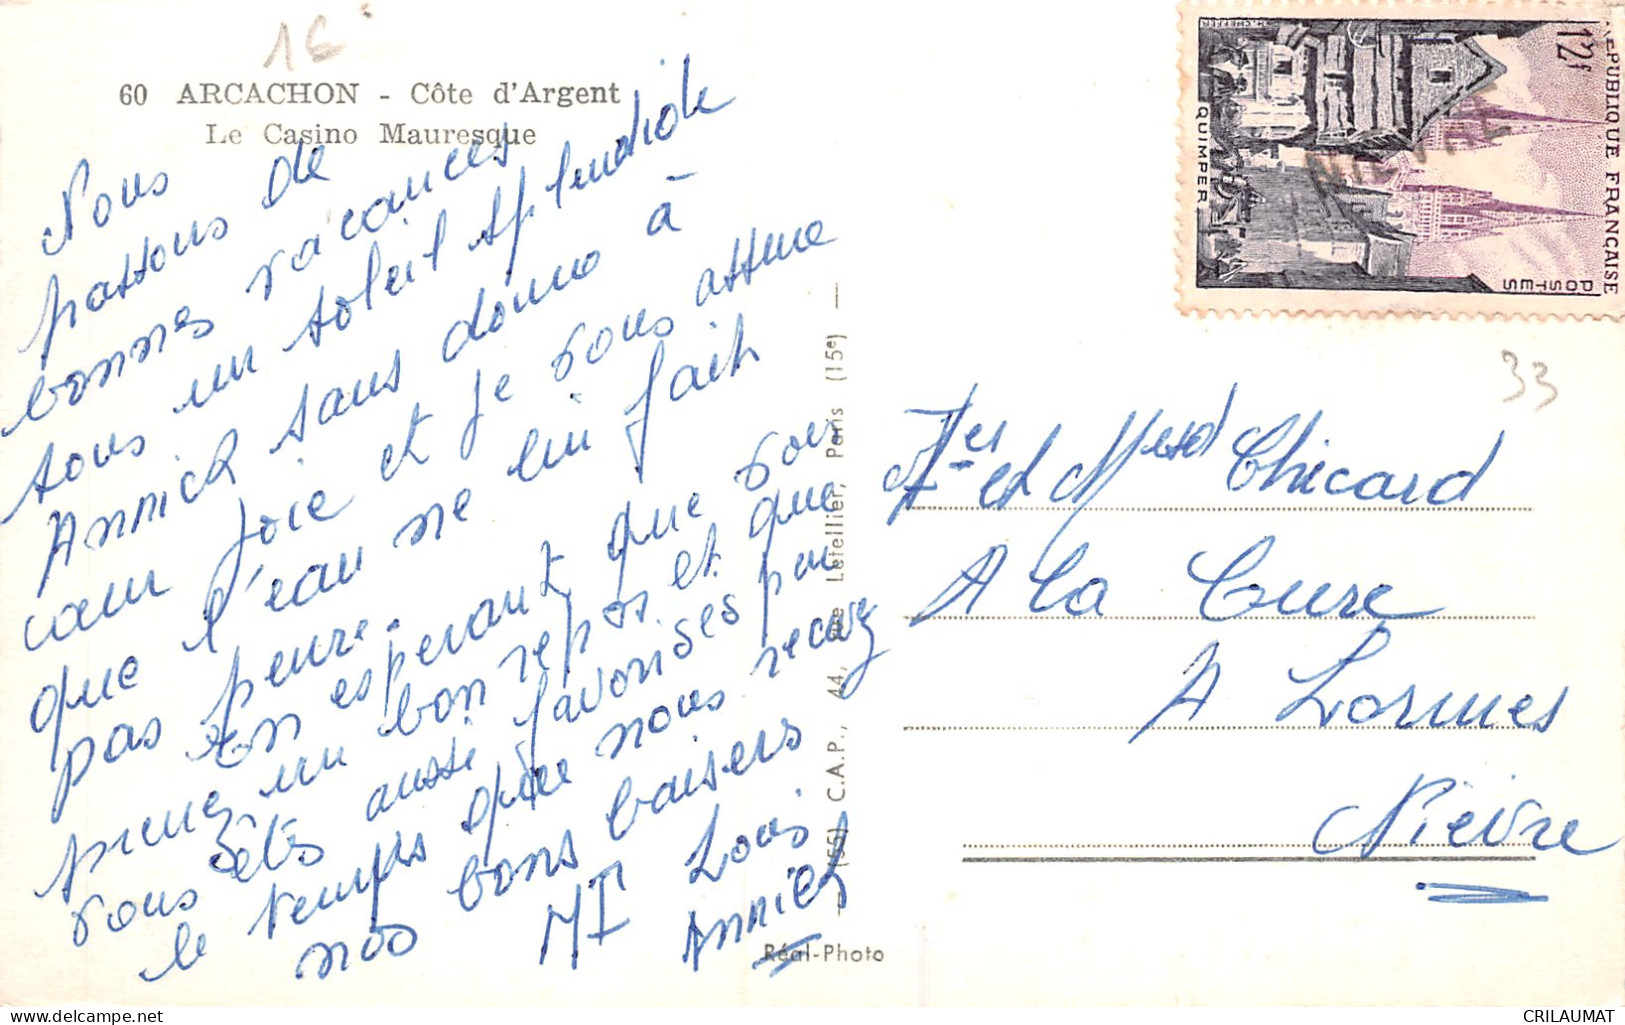 16
60 ARCACHON - Côte d'Argent
Le Casino Mauresque
Nous
passons de
bonnes vacances
sous un soleil splendide
Annick sans doune à
cœur joie et je vous assure
que l'eau ne lui fait
pas peure.
En esperant que vous
prenez un bon repos et que
vous êtes aussi favorisés par
le temps que nous recevez
nos bons baisers
MT Louis
Annick
Réal-Photo
(55) C.A.P., 44, rue Letellier, Paris (15e)
RÉPUBLIQUE FRANÇAISE
12f
POSTES
QUIMPER
33
et Chicard
A la Cure
A Lormes
Nièvre
CRILAUMAT